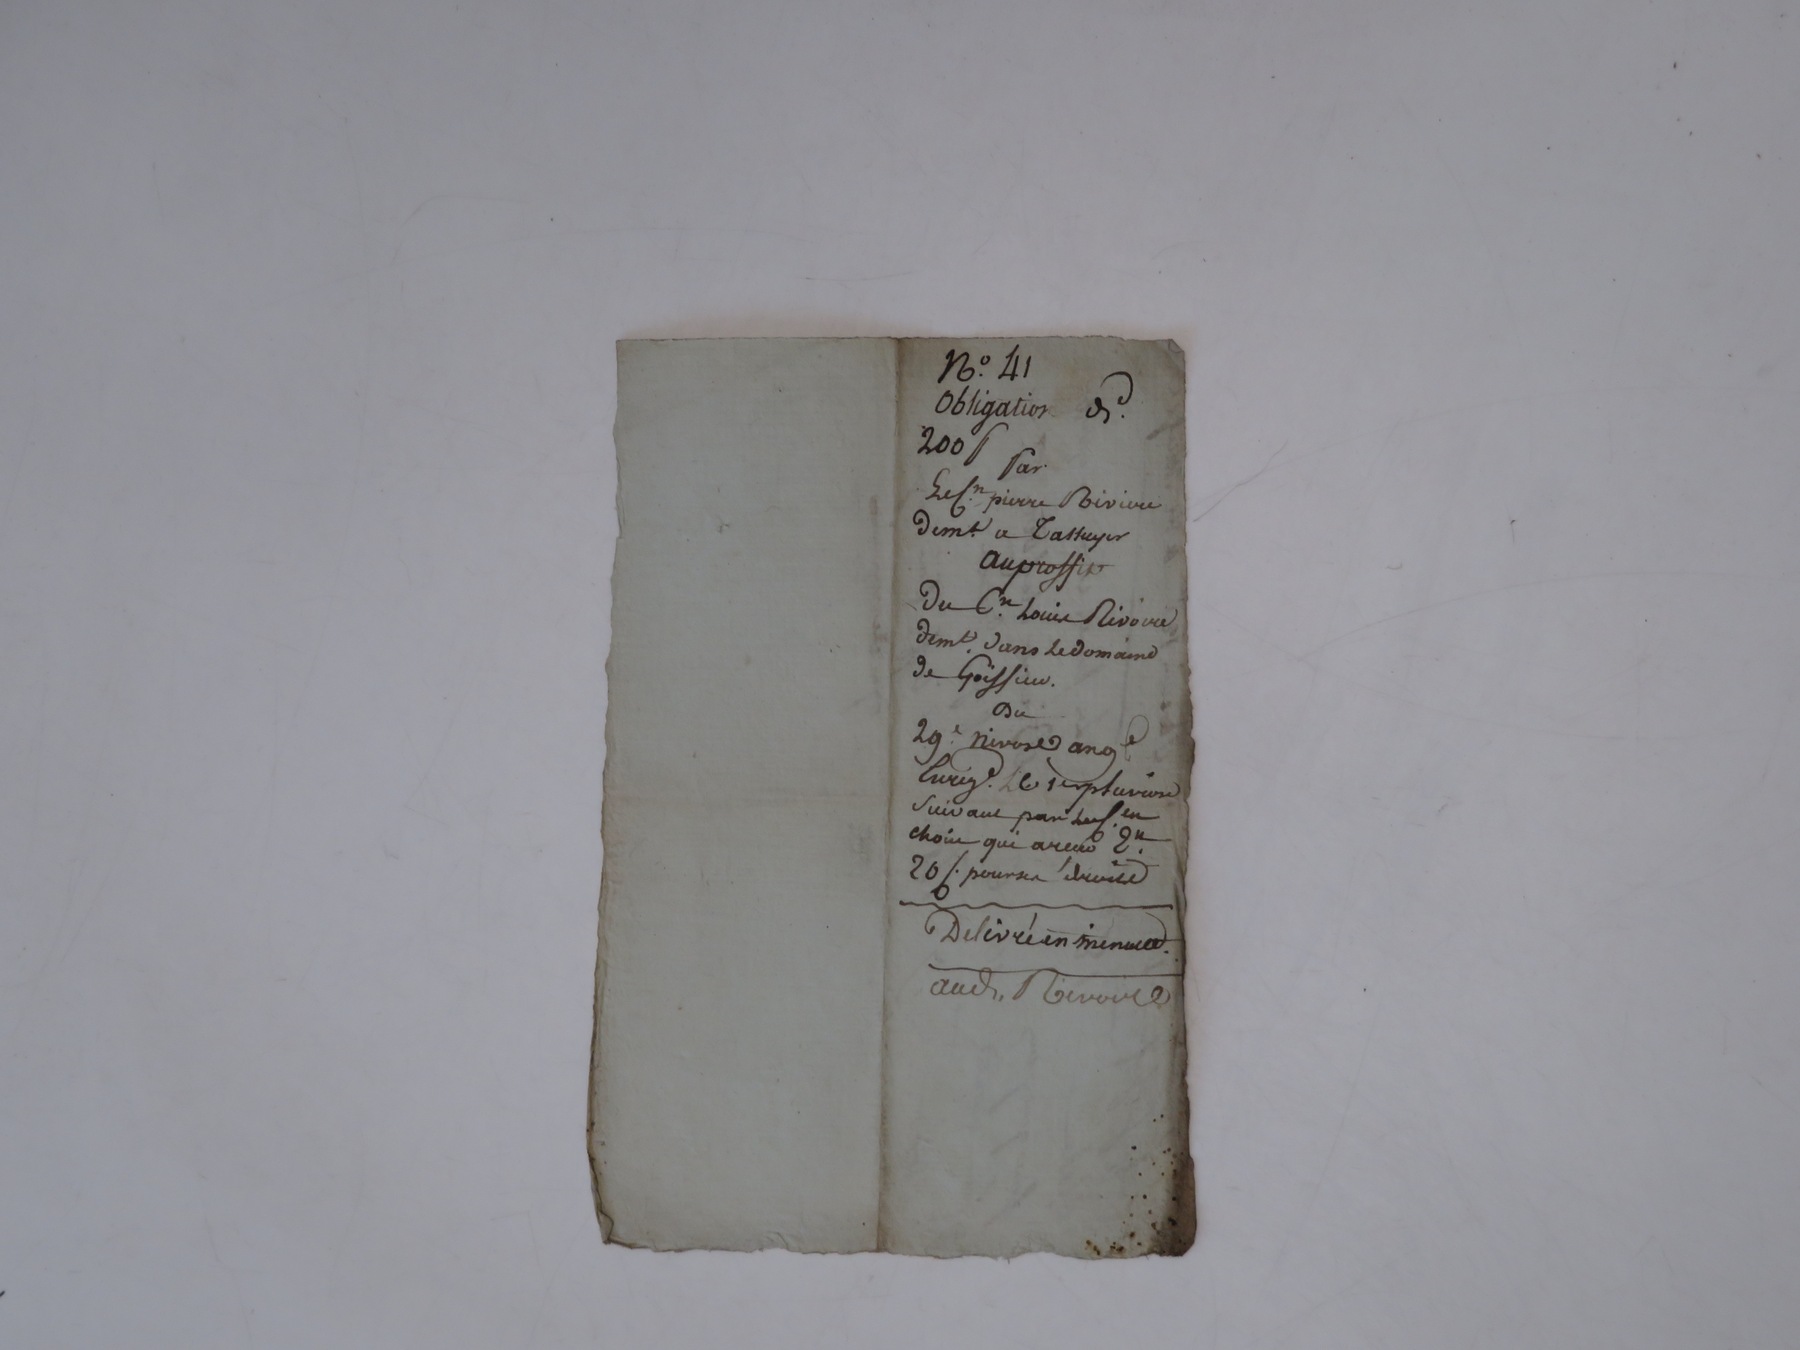 N.º 41
Obligation de.
200 f
Par
Le C.en pierre Riviere
demt. a
Auproffit
Du C.n Louis Rivoire
demt. dans Le domaine
de Goissieu.
Du
29.e nivose an 9.e
Enreg.é Le 1er pluviose
Suivant par Le C.en
choin qui a recu 2.f
20 c. pour sa droite
Delivré en minute.
aud. Rivoire